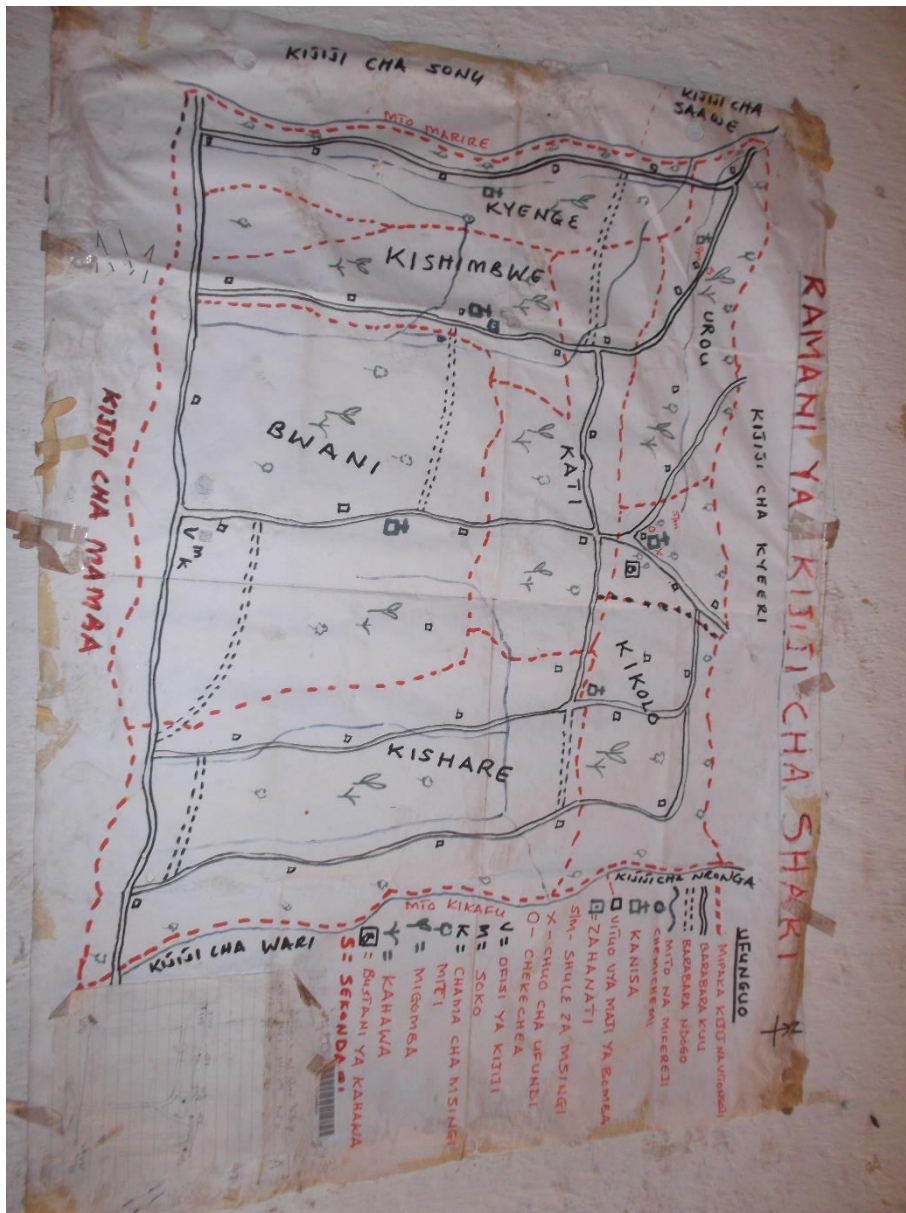 RAMANI YA KIJIJI CHA SHARI
KIJIJI CHA SONU
KIJIJI CHA
SAAWE
MTO MARIRE
KYENGE
KISHIMBWE
UROU
S/M
S
KIJIJI CHA KYEERI
BWANI
KATI
S/M
O
X
B
V M K
KIJIJI CHA MAMBA
KIKOLO
KISHARE
KIJIJI CHA NRONGA
MTO KIKAFU
KIJIJI CHA WARI
UFUNGUO
MIPAKA KIJIJI NA VITONGOJI
BARABARA KUU
BARABARA NDOGO
MITO NA MIFEREJI
CHEMICHEMI
KANISA
VITUO VYA MAJI YA BOMBA
= ZAHANATI
S/M - SHULE ZA MSINGI
X - CHUO CHA UFUNDI
O - CHEKECHEA
V = OFISI YA KIJIJI
M = SOKO
K = CHAMA CHA MSINGI
= MITI
= MIGOMBA
= KAHAWA
B = BUSTANI YA KAHAWA
S = SEKONDARI